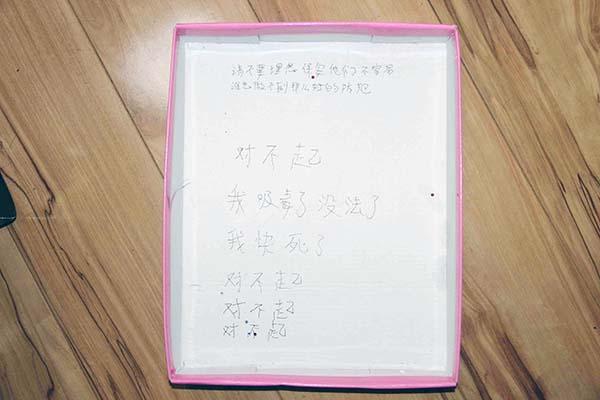 请不要理怨保安他们不容易
谁也做不到那么好的防犯
对不起
我吸毒了没法了
我快死了
对不起
对不起
对不起